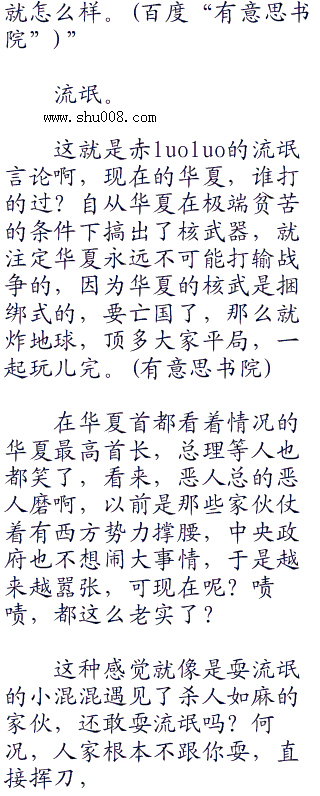 就怎么样。(百度“有意思书
院”)”
流氓。
www.shu008.com
这就是赤luoluo的流氓
言论啊，现在的华夏，谁打
的过？自从华夏在极端贫苦
的条件下搞出了核武器，就
注定华夏永远不可能打输战
争的，因为华夏的核武是捆
绑式的，要亡国了，那么就
炸地球，顶多大家平局，一
起玩儿完。(有意思书院)
在华夏首都看着情况的
华夏最高首长，总理等人也
都笑了，看来，恶人总的恶
人磨啊，以前是那些家伙仗
着有西方势力撑腰，中央政
府也不想闹大事情，于是越
来越嚣张，可现在呢？啧
啧，都这么老实了？
这种感觉就像是耍流氓
的小混混遇见了杀人如麻的
家伙，还敢耍流氓吗？何
况，人家根本不跟你耍，直
接挥刀，